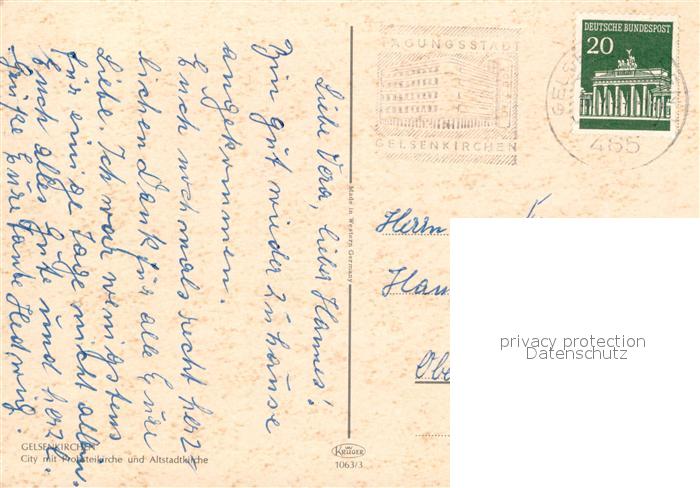 Liebe Vera, lieber Hannes!
Bin gut wieder zuhause
angekommen.
Euch nochmals recht herz-
lichen Dank für alle Eure
Liebe. Ich war wenigstens
für einige Tage nicht allein.
Euch alles Gute und herzl.
Grüße Eure Tante Hedwig.
GELSENKIRCHEN
City mit Propsteikirche und Altstadtkirche
Made in Western Germany
KRÜGER
1063/3
TAGUNGSSTADT
GELSENKIRCHEN
DEUTSCHE BUNDESPOST
20
465
Herrn
privacy protection
Datenschutz